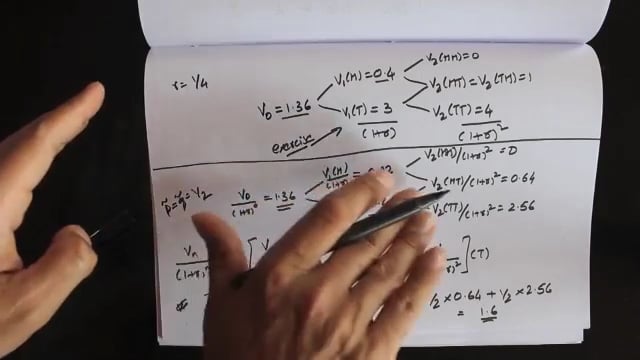 r = 1/4
V₀ = 1.36
V₁(H) = 0.4
V₁(T) = 3
(1+r)
V₂(HH) = 0
V₂(HT) = V₂(TH) = 1
V₂(TT) = 4
(1+r)²
exercise
p̃ = q̃ = 1/2
V₀/(1+r)⁰ = 1.36
V₁(H)/(1+r) =
V₂(HH)/(1+r)² = 0
V₂(HT)/(1+r)² = 0.64
V₂(TT)/(1+r)² = 2.56
Vₙ
[V
](T)
1/2 × 0.64 + 1/2 × 2.56
= 1.6